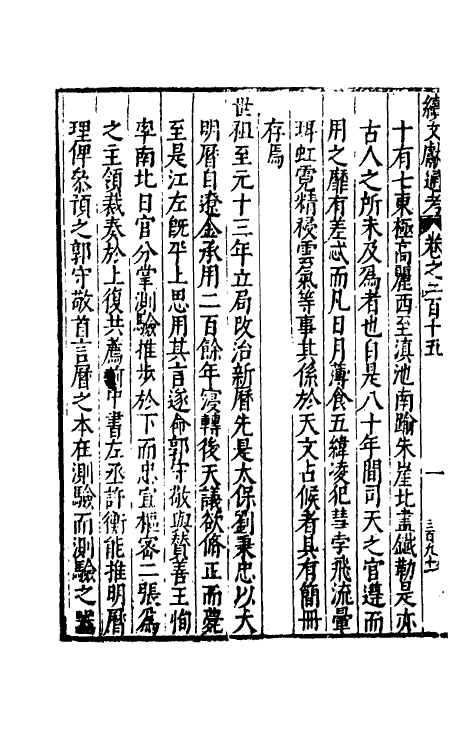 續文獻通考 卷之二百十五 一
十有七東極高麗西至滇池南踰朱崖北盡鐵勒是亦
古人之所未及爲者也自是八十年間司天之官遵而
用之靡有差忒而凡日月薄食五緯凌犯彗孛飛流暈
珥虹霓精祲雲氣等事其係於天文占候者具有簡冊
存焉
世祖至元十三年立局改治新曆先是太保劉秉忠以大
明曆自遼金承用二百餘年寖轉後天議欲脩正而薨
至是江左旣平上思用其言遂命郭守敬與贊善王恂
率南北日官分掌測驗推步於下而忠宜樞密二張爲
之主領裁奏於上復共薦前中書左丞許衡能推明曆
理俾叅預之郭守敬首言曆之本在測驗而測驗之器